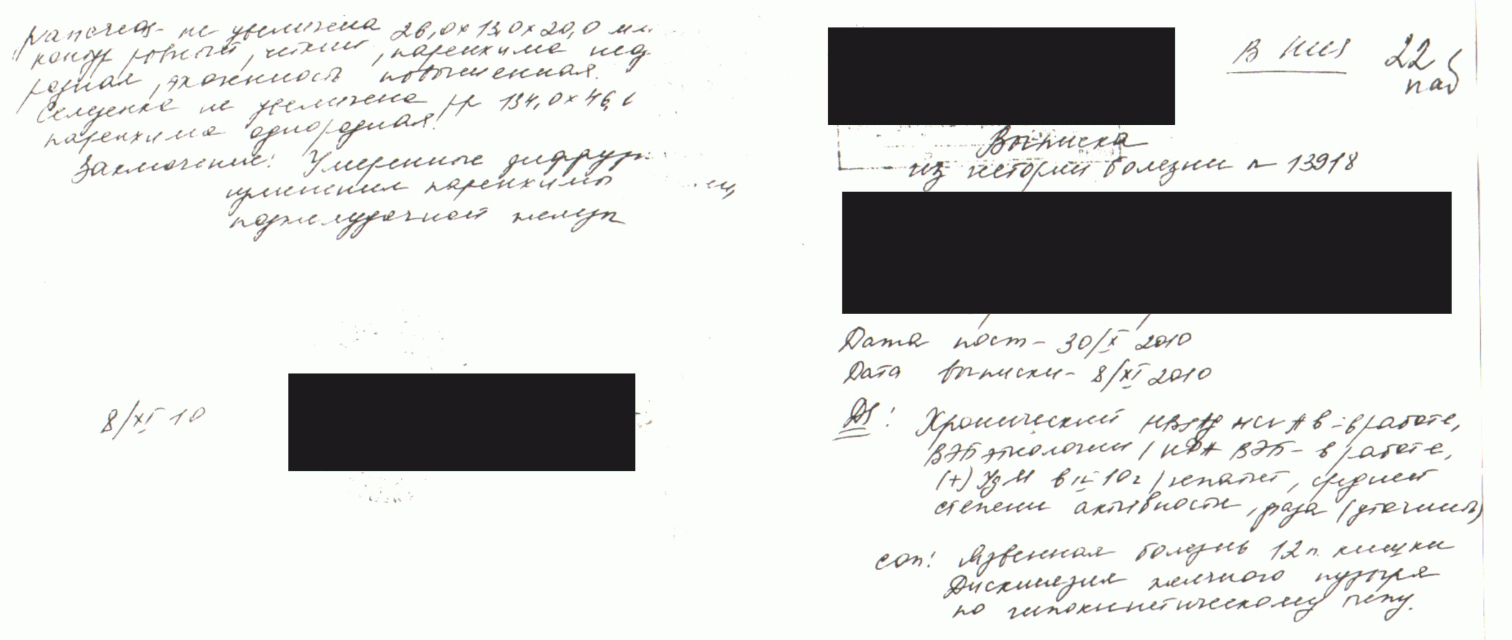 не увеличена 26,0х13,0х20,0 мм
контур ровный, четкий, паренхима неод
родная, эхогенность повышенная.
Селезенка не увеличена 134,0х46,
паренхима однородная.
Заключение: Умеренные диффузн.
изменения паренхимы
поджелудочной железы
8/XI 10
В 22
наб
Выписка
из истории болезни n 13918
Дата пост - 30/X 2010
Дата выписки - 8/XI 2010
Ds: Хронический HBsAg HCV АВ - в работе,
ВЭБ этиологии ( ИФА ВЭБ - в работе,
(+) IgM в 10г) гепатит, средней
степени активности, фаза (уточнить)
соп: Язвенная болезнь 12п. кишки
Дискинезия желчного пузыря
по гипокинетическому типу.